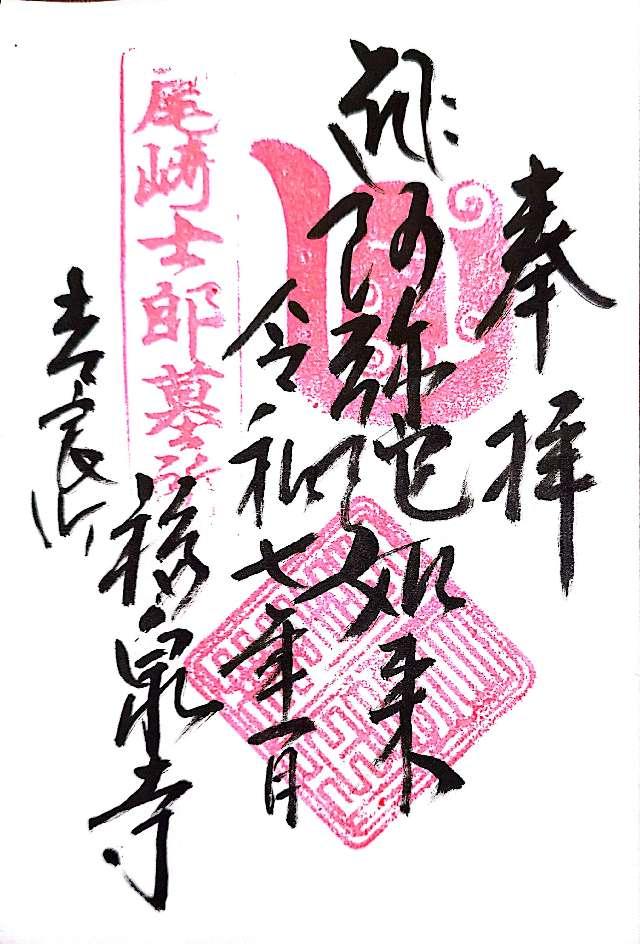 奉拝
阿弥陀如来
令和七年一月
尾崎士郎墓所
福泉寺
吉良山